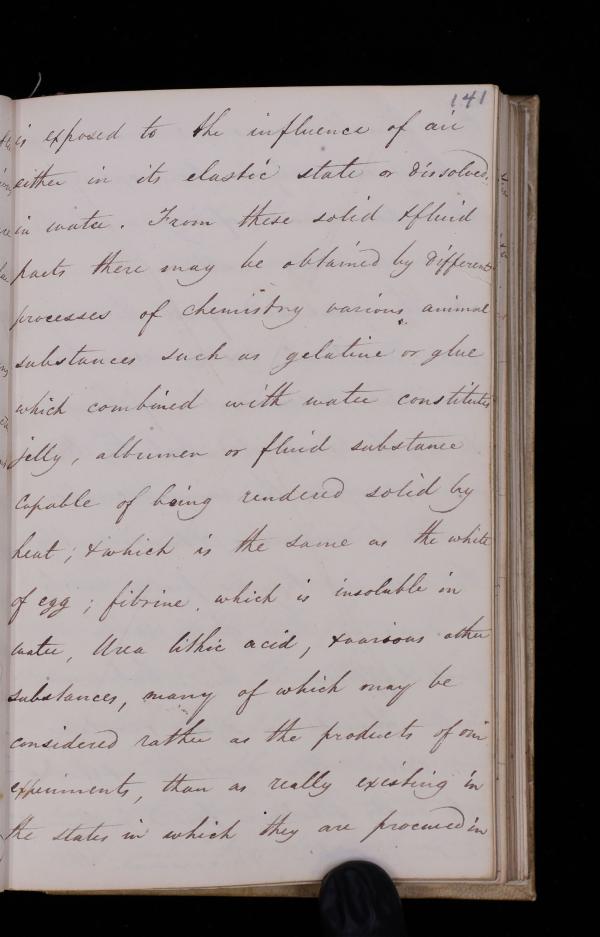 141
is exposed to the influence of air
either in its elastic state or dissolved
in water. From these solid & fluid
parts there may be obtained by different
processes of chemistry various animal
substances such as gelatine or glue
which combined with water constitutes
jelly, albumen or fluid substance
Capable of being rendered solid by
heat; & which is the same as the white
of egg; fibrine, which is insoluble in
water, Urea lithic acid, & various other
substances, many of which may be
considered rather as the products of our
experiments, than as really existing in
the states in which they are procured in